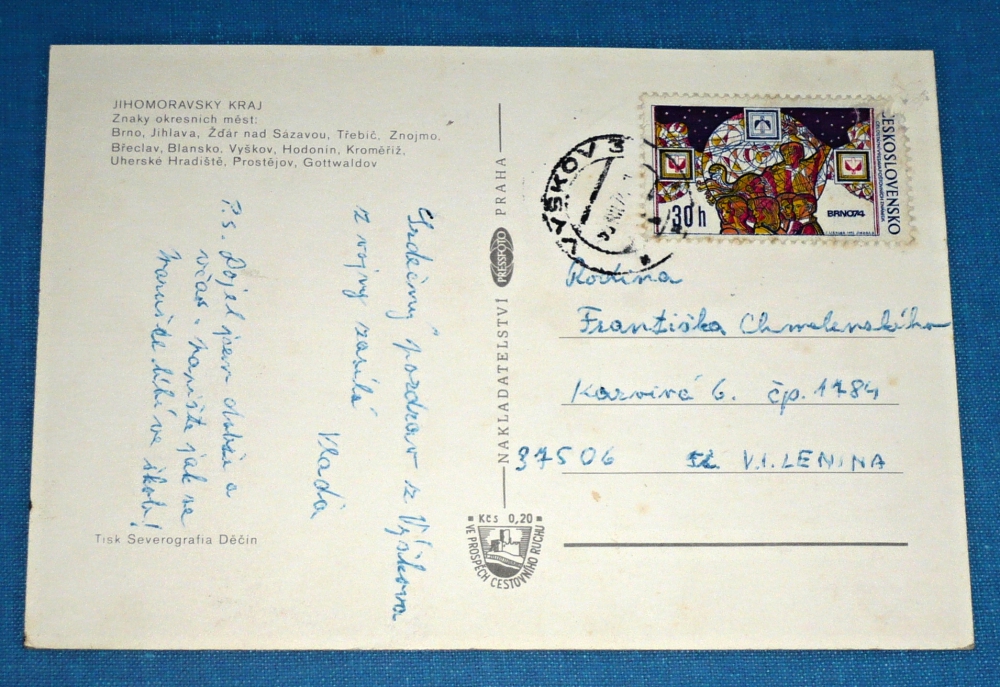 JIHOMORAVSKÝ KRAJ
Znaky okresních měst:
Brno, Jihlava, Žďár nad Sázavou, Třebíč, Znojmo,
Břeclav, Blansko, Vyškov, Hodonín, Kroměříž,
Uherské Hradiště, Prostějov, Gottwaldov
Srdečný pozdrav z Vyškova
z vojny zasílá
Vlaďa
P.s. Dojel jsem dobře a
včas. napište jak se
ve škole!
Tisk Severografia Děčín
NAKLADATELSTVÍ PRESSFOTO PRAHA
Kčs 0,20
VE PROSPĚCH CESTOVNÍHO RUCHU
VYŠKOV 3
ČESKOSLOVENSKO
30 h
BRNO74
Rodina
Františka Chmelenského
Karviná 6. čp. 1784
37506 V.I. LENINA